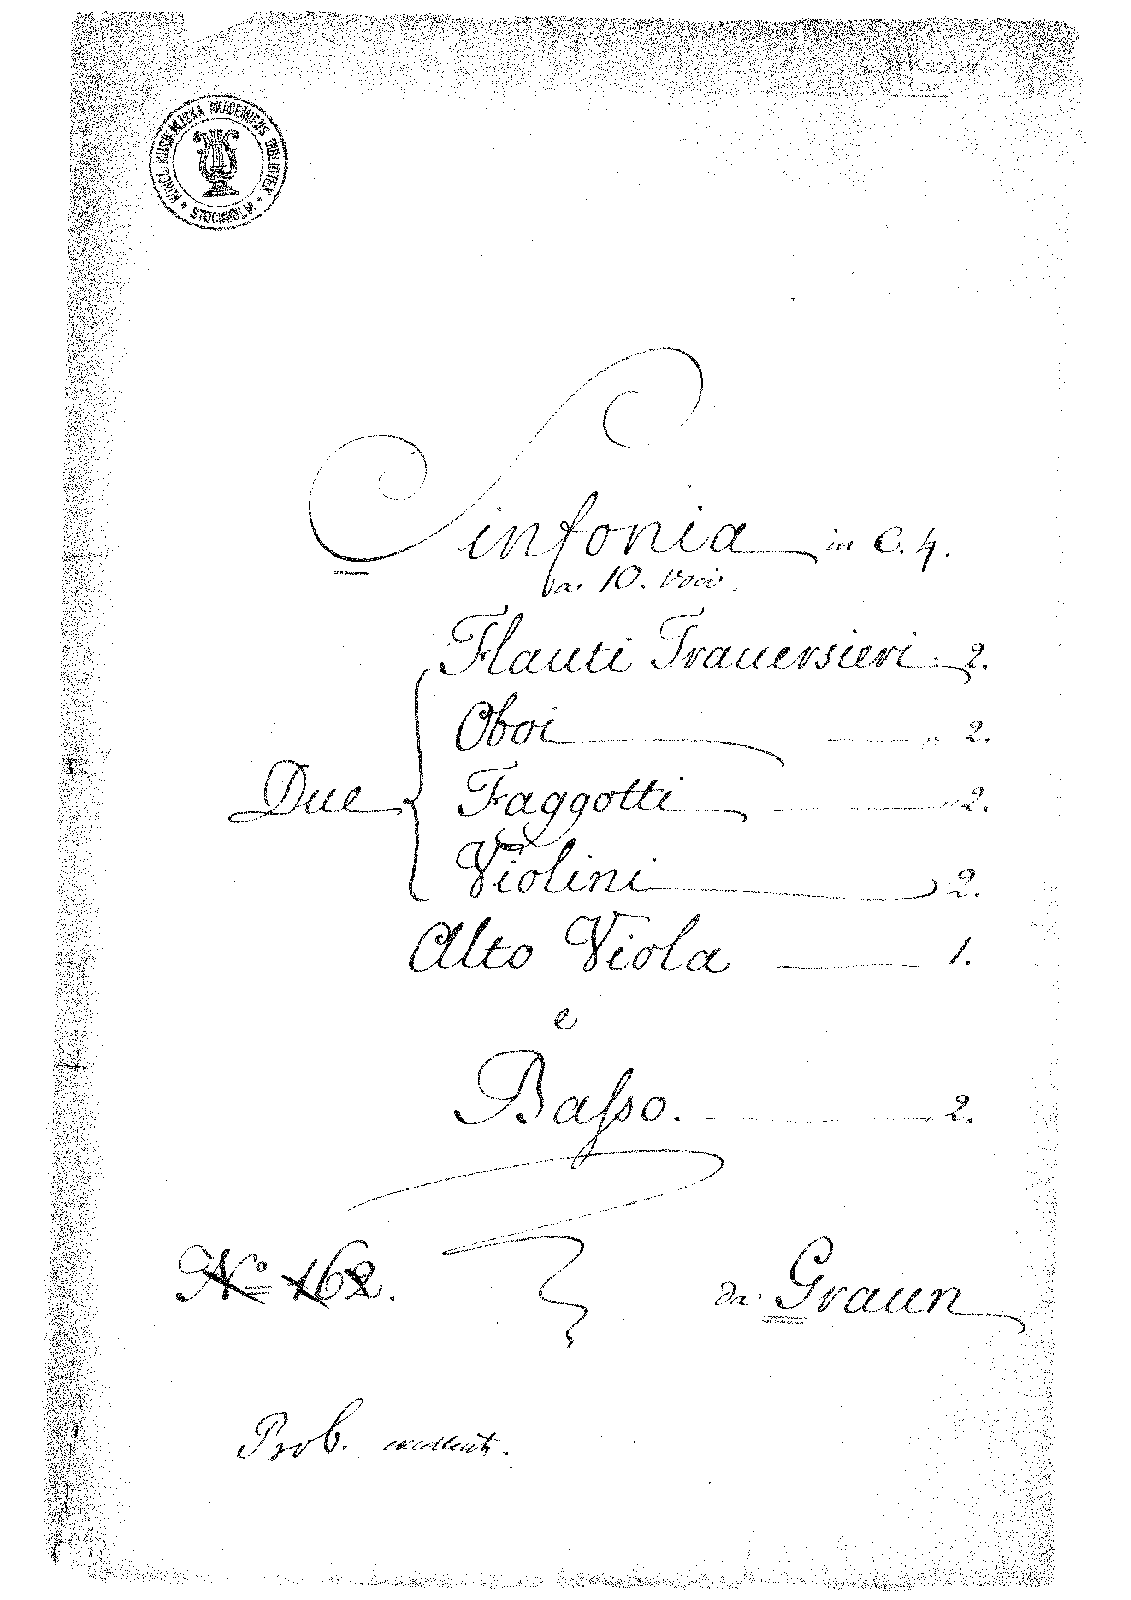 KUNGL. MUSIKALISKA AKADEMIENS BIBLIOTEK
* STOCKHOLM *
Sinfonia in C. 4.
a. 10. Voci.
Flauti Trauersieri 2.
Oboi 2.
Due
Faggotti 2.
Violini 2.
Alto Viola 1.
e
Basso. 2.
No 162.
da Graun
Prob. excellente.